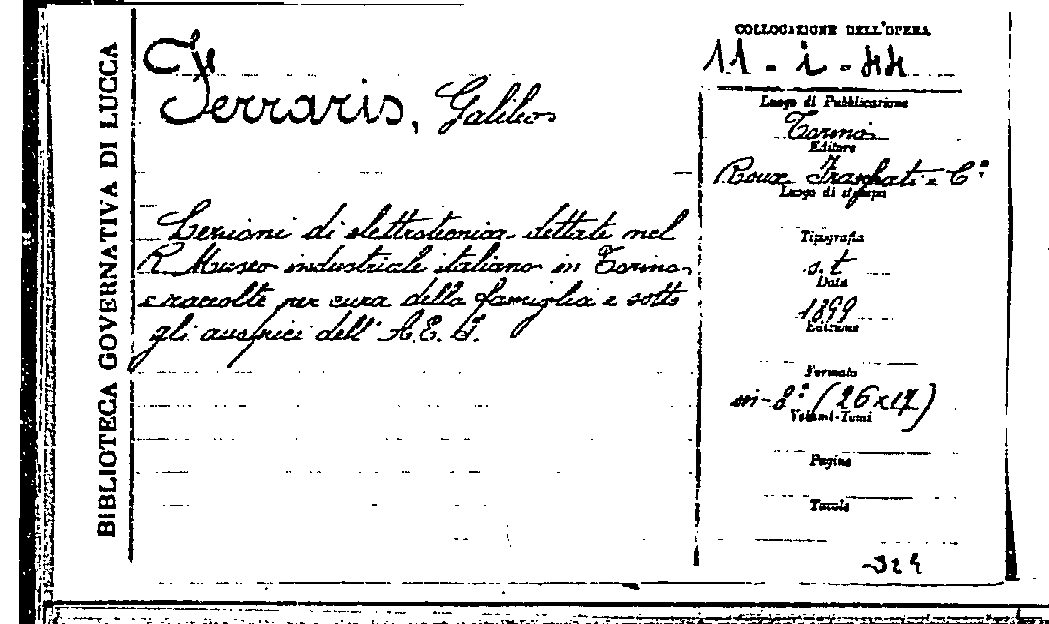 BIBLIOTECA GOVERNATIVA DI LUCCA
Ferraris, Galileo
Lezioni di elettrotecnica dettate nel
R. Museo industriale italiano in Torino
e raccolte per cura della famiglia e sotto
gli auspici dell' A. E. I.
COLLOCAZIONE DELL'OPERA
11 - i - 44
Luogo di Pubblicazione
Torino
Editore
Roux Frassati e Cº
Luogo di stampa
Tipografia
s. t
Data
1899
Edizione
Formato
in-8º (26x17)
Volumi-Tomi
Pagine
Tavole